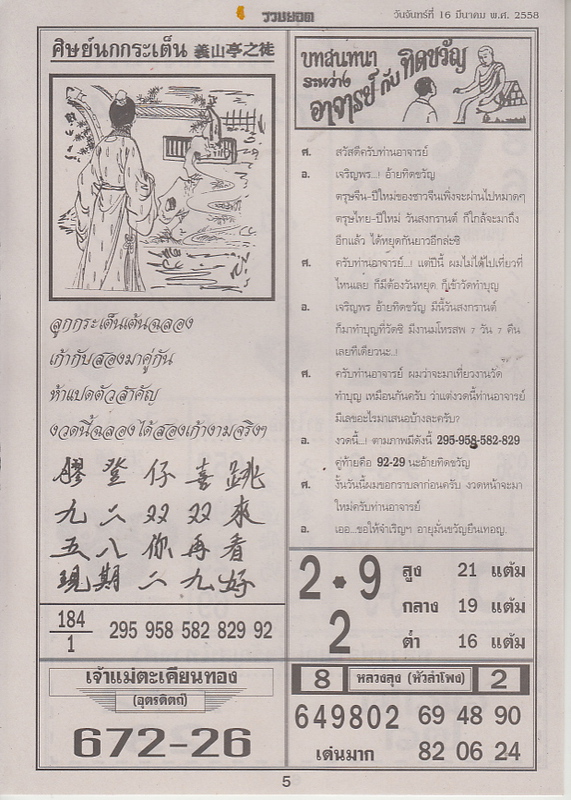 รวยยอด
วันจันทร์ที่ 16 มีนาคม พ.ศ. 2558
ศิษย์นกกระเต็น 義山亭之徒
ลูกกระเด็นเต้นฉลอง
เก้ากับสองมาคู่กัน
ห้าแปดตัวสำคัญ
งวดนี้ฉลองได้สองเก้างามจริงๆ
膠 登 仔 喜 跳
九 二 双 双 來
五 八 你 再 看
現 期 二 九 好
184
1
295 958 582 829 92
เจ้าแม่ตะเคียนทอง
(อุตรดิตถ์)
672-26
บทสนทนา
ระหว่าง
อาจารย์ กับ ทิดขวัญ
ศ. สวัสดีครับท่านอาจารย์
อ. เจริญพร...! อ้ายทิดขวัญ
ตรุษจีน-ปีใหม่ของชาวจีนเพิ่งจะผ่านไปหมาดๆ
ตรุษไทย-ปีใหม่ วันสงกรานต์ ก็ใกล้จะมาถึง
อีกแล้ว ได้หยุดกันยาวอีกล่ะซิ
ศ. ครับท่านอาจารย์...! แต่ปีนี้ ผมไม่ได้ไปเที่ยวที่
ไหนเลย ก็มีต้องวันหยุด ก็เข้าวัดทำบุญ
อ. เจริญพร อ้ายทิดขวัญ มีนี้วันสงกรานต์
ก็มาทำบุญที่วัดซิ มีงานมโหรสพ 7 วัน 7 คืน
เลยทีเดียวนะ..!
ศ. ครับท่านอาจารย์ ผมว่าจะมาเที่ยวงานวัด
ทำบุญ เหมือนกันครับ ว่าแต่งวดนี้ท่านอาจารย์
มีเลขอะไรมาเสนอบ้างละครับ?
อ. งวดนี้...! ตามภาพมีดังนี้ 295-958-582-829
คู่ท้ายคือ 92-29 นะอ้ายทิดขวัญ
ศ. งั้นวันนี้ผมขอกราบลาก่อนครับ งวดหน้าจะมา
ใหม่ครับท่านอาจารย์
อ. เออ...ขอให้จำเริญๆ อายุมั่นขวัญยืนเทอญ.
2 • 9
2
สูง 21 แต้ม
กลาง 19 แต้ม
ต่ำ 16 แต้ม
8 หลวงลุง (หัวลำโพง) 2
649802 69 48 90
เด่นมาก 82 06 24
5